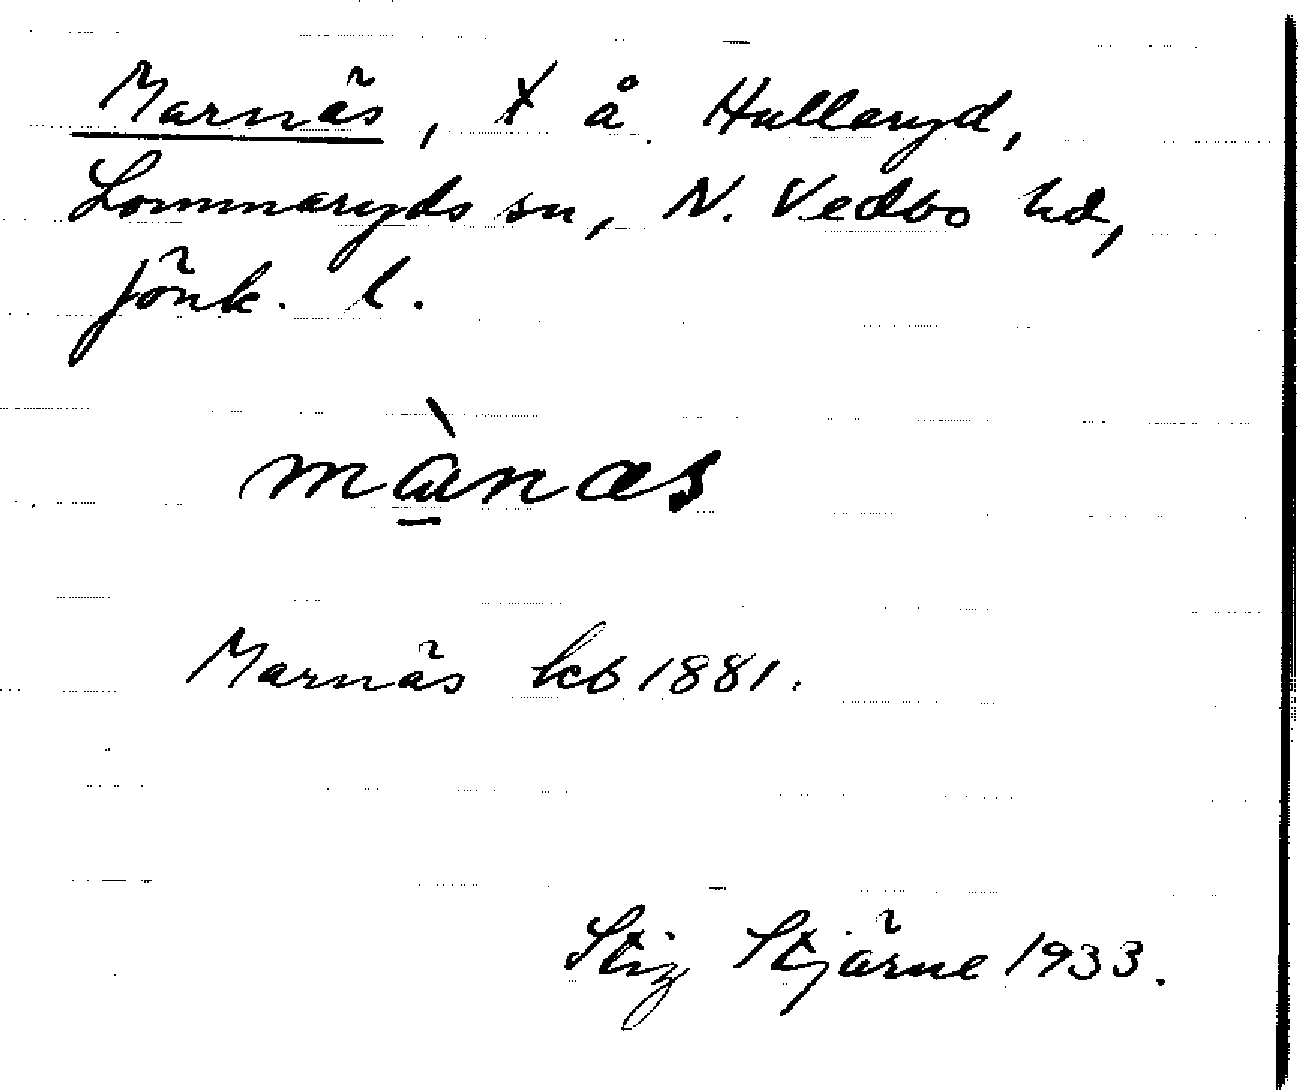 Marnäs, t å Hullaryd,
Lommaryds sn, N. Vedbo hd,
Jönk. l.
mànas
Marnäs kb 1881.
Stig Stjärne 1933.